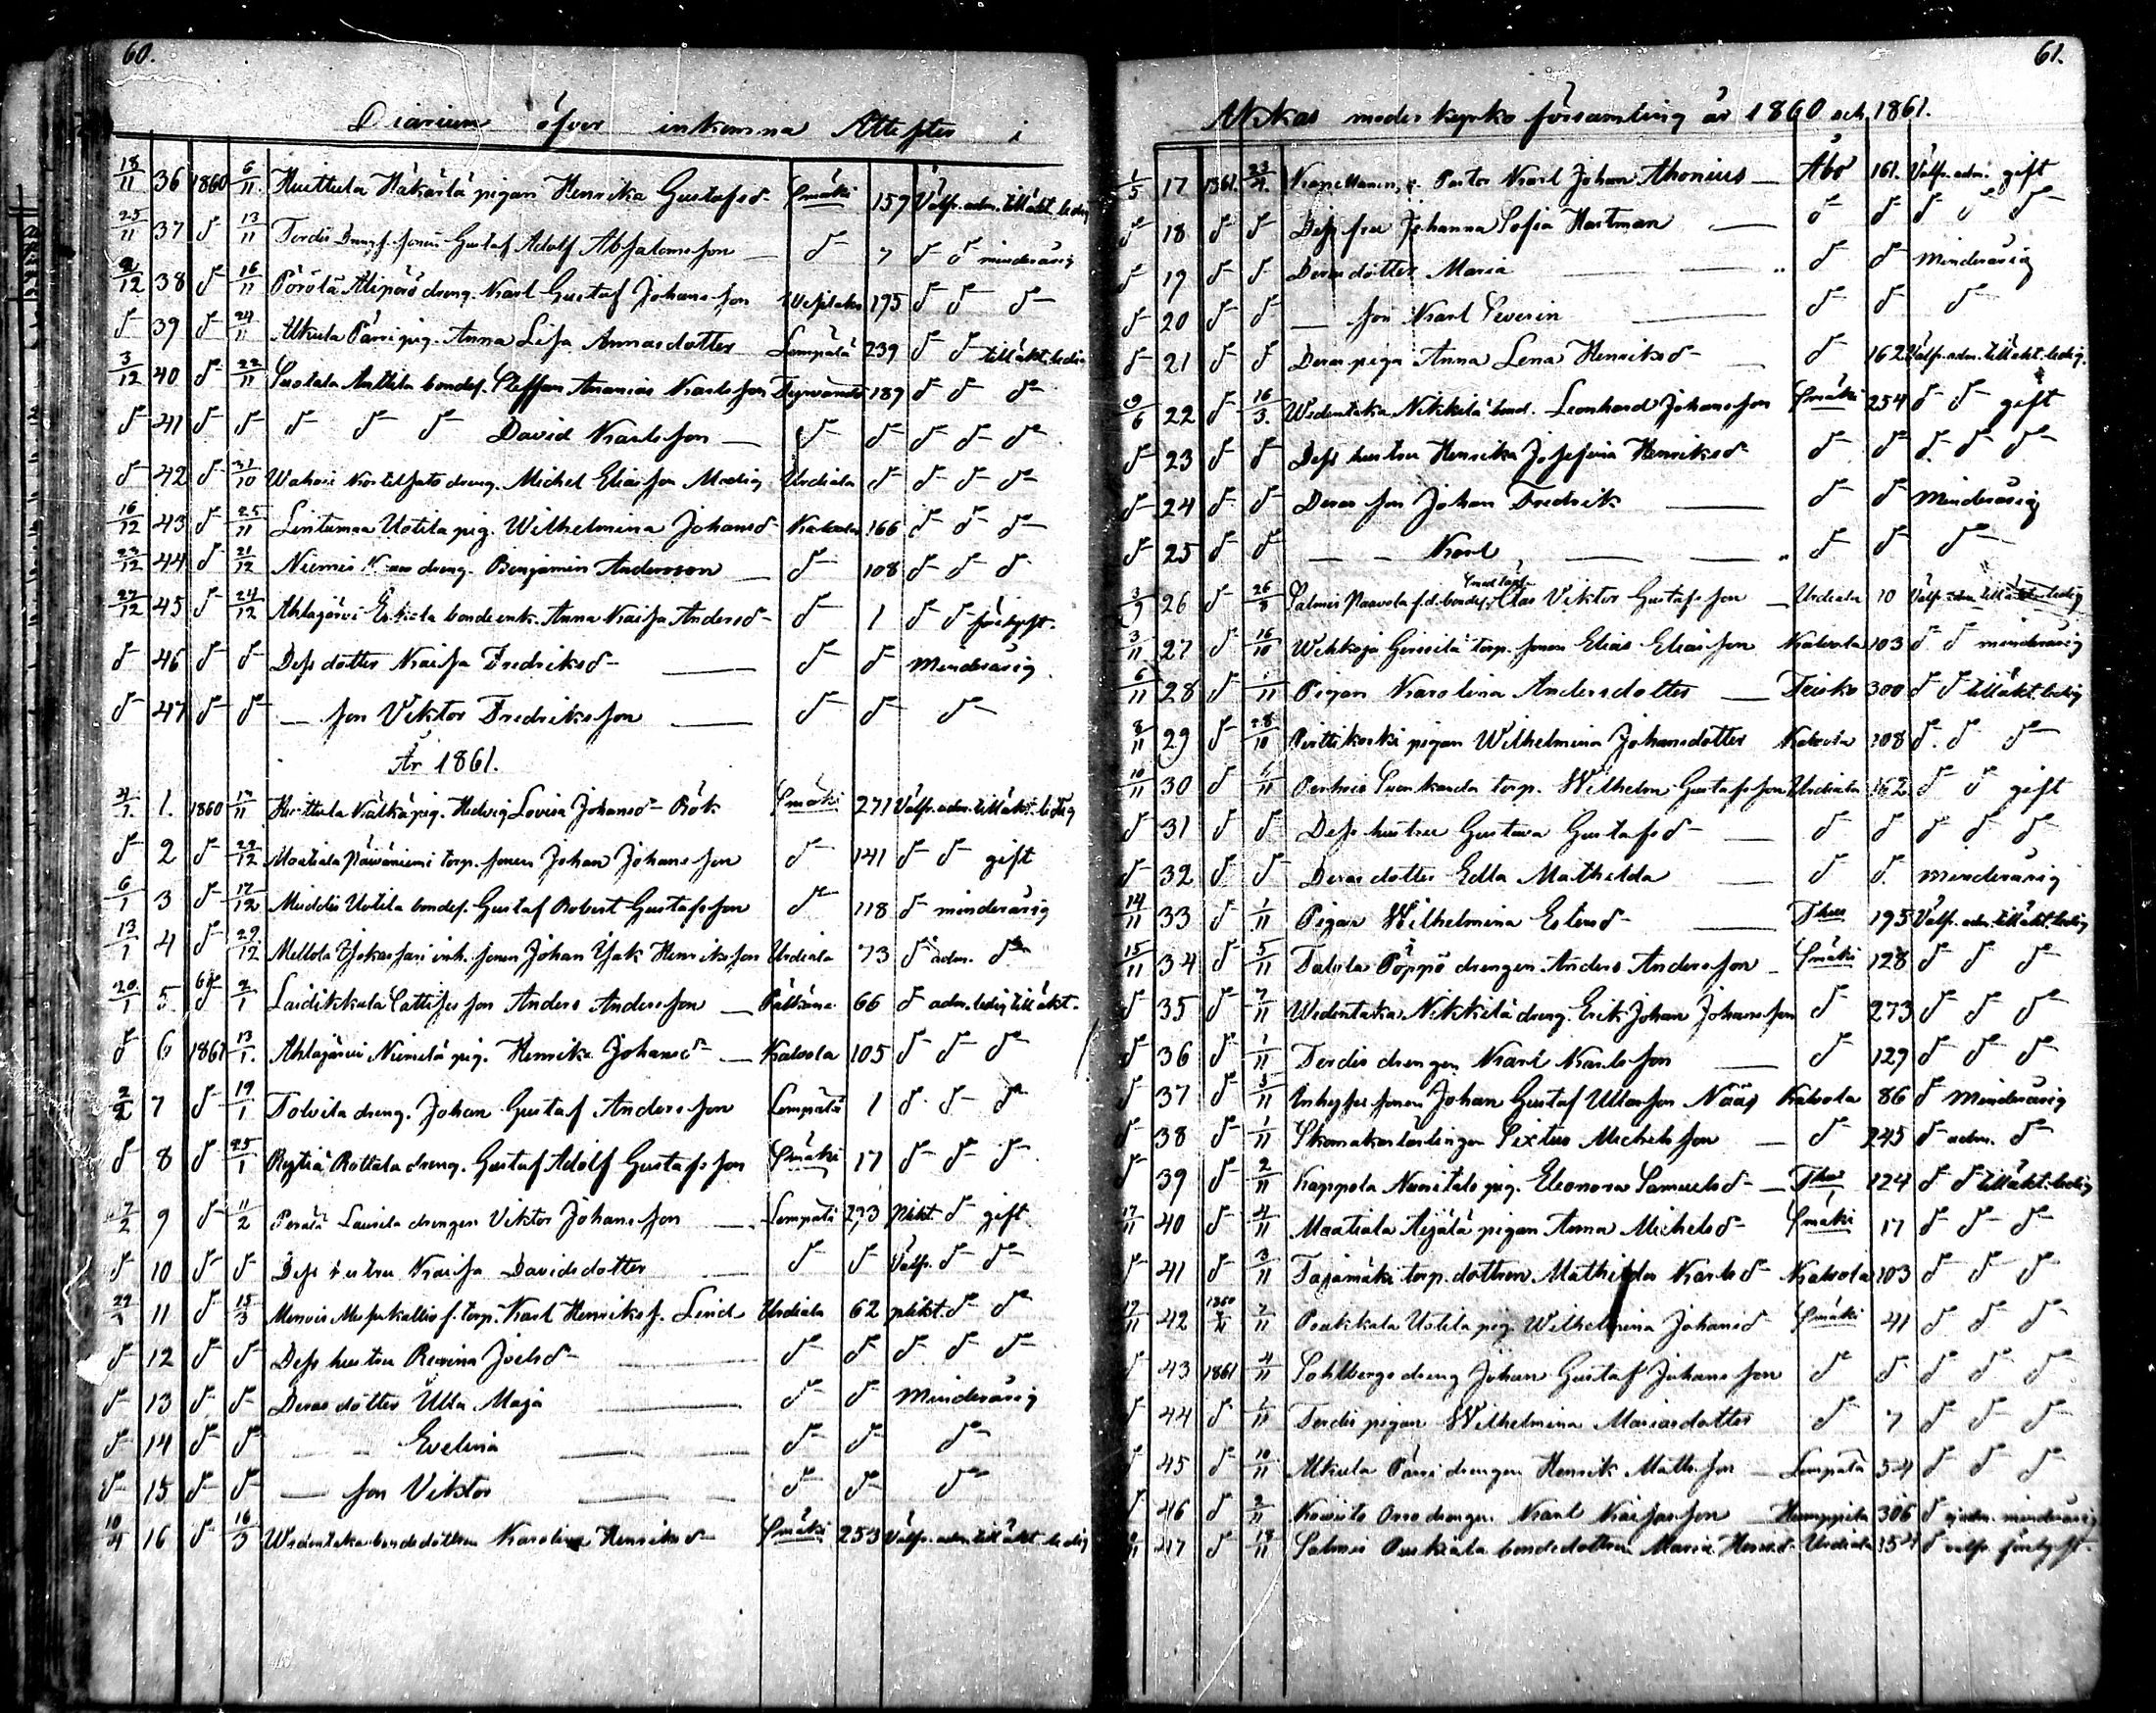 60.
Diarium öfver inkomna Attester i
18/11 36 1860 6/11. Huittula Häkärlä pigan Henrika Gustafsd Smäki 159 Välfr. adm. till äkt. ledig
25/11 37 d 13/11 Terdis Gustaf Adolf Absalomsson d 7 d d minderårig
2/12 38 d 16/11 Pörölä Alipörö dreng. Karl Gustaf Johansson Vesilaks 195 d d d
d 39 d 24/11 Akula Pärri pig. Anna Lisa Annasdotter Lempälä 239 d d till äkt. ledig
3/12 40 d 22/11 Anttila bondes. Steffan Ananias Karlsson Tyrvändö 189 d d d
d 41 d d d d d David Karlsson d d d d d
d 42 d 31/10 Wahois dreng. Michel Eliasson Modig Urdiala d d d d
16/12 43 d 25/11 Lintumaa Uotila pig. Wilhelmina Johansd Kalvola 166 d d d
23/12 44 d 21/12 Niemis dreng. Benjamin Andersson d 108 d d d
27/12 45 d 24/12 Ahlajärvi Eskola bondeenk. Anna Kaisa Andersd d 1 d d förlofft.
d 46 d d Dess dotter Kaisa Fredriksd d d Minderårig
d 47 d d — son Viktor Fredriksson d d d
År 1861.
4/1. 1. 1860 17/11 Huittula Kälkä pig. Hedvig Lovisa Johansd Rök Smäki 271 Välfr. adm. till äkt. ledig
d 2 d 22/12 Maatiala Päiväniemi torp. sonen Johan Johansson d 141 d d gift
6/1 3 d 17/12 Muddis Uotila bondes. Gustaf Robert Gustafsson d 118 d minderårig
13/1 4 d 29/12 Mellola inh. sonen Johan Isak Henriksson Urdiala 73 d adm. d
20/1 5 61 d 2/1 Laidikkala Anders Andersson Pälkäne 66 d adm. ledig till äkt.
d 6 1861 13/1. Ahlajärvi Niemelä pig. Henrika Johansd Kalvola 105 d d d
2/2 7 d 19/1 Tolvila dreng. Johan Gustaf Andersson Lempälä 1 d d d
d 8 d 25/1 Rottala dreng. Gustaf Adolf Gustafsson Smäki 17 d d d
17/2 9 d 11/2 Perälä Laurila drengen Viktor Johansson Lempälä 273 Nkt. d gift
d 10 d d Dess hustru Kaisa Davidsdotter d d Välfr. d d
11 d 15/3 f. torp. Karl Henrikss. Lind Urdiala 62 nkt. d d
d 12 d d Dess hustru Regina Joelsd d d d d d
d 13 d d Deras dotter Ulla Maja d d Minderårig
d 14 d d — Evelina d d d
d 15 d d — son Viktor d d d
10/4 16 d 16/3 Wedentaka bondedottren Karolina Henriksd Smäki 253 Välfr. adm. till äkt. ledig
61.
Akkas moderkyrko församling år 1860 och 1861.
1/5 17 1861. 23/4. Kapellanen, v. Pastor Karl Johan Ahonius Åbo 161. Välfr. adm. gift
d 18 d d Dess fru Johanna Sofia Hartman d d d d d
d 19 d d Deras dotter Maria d d Minderårig
d 20 d d — son Karl Severin d d d
d 21 d d Deras piga Anna Lena Henriksd d 162 Välfr. adm. till äkt. ledig.
9/6 22 d 16/3. Wedentaka Nikkilä bond. Leonhard Johansson Smäki 254 d d gift
d 23 d d Dess hustru Henrika Josefina Henriksd d d d d d
d 24 d d Deras son Johan Fredrik d d Minderårig
d 25 d d — Karl d d d
3/9 26 d 26/8 Salmis Paavola f.d. bondes. Clas Viktor Gustafsson Urdiala 10 Välfr. adm. till äkt. ledig
3/11 27 d 16/10 torp. sonen Elias Eliasson Kalvola 103 d d minderårig
6/11 28 d 1/11 Pigan Karolina Andersdotter Teisko 300 d d till äkt. ledig
8/11 29 d 28/10 Pirttikoski pigan Wilhelmina Johansdotter Kalvola 108 d d d
10/11 30 d 6/11 torp. Wilhelm Gustafsson Urdiala 162 d d gift
d 31 d d Dess hustru Gustava Gustafsd d d d d d
d 32 d d Deras dotter Edla Mathilda d d. minderårig
14/11 33 d 1/11 Pigan Wilhelmina Estersd Thus 195 Välfr. adm. till äkt. ledig
15/11 34 d 5/11 Talvila Pöppö drengen Anders Andersson Smäki 128 d d d
d 35 d 7/11 Wedentaka Nikkilä dreng. Erik Johan Johansson d 273 d d d
d 36 d 1/11 Terdis drengen Karl Karlsson d 129 d d d
d 37 d 5/11 Inhyses sonen Johan Gustaf Ullasson Nääs Kalvola 86 d Minderårig
d 38 d 1/11 Skomakarlärlingen Sixtus Michelsson d 245 d adm. d
d 39 d 2/11 Kappola pig. Eleonora Samuelsd Thus 124 d d till äkt. ledig
17/11 40 d 4/11 Maatiala Äijälä pigan Anna Michelsd Smäki 17 d d d
d 41 d 3/11 Tajamäki torp. dottren Mathilda Karlsd Kalvola 103 d d d
17/11 42 1860 7/11 Uotila pig. Wilhelmina Johansd Smäki 41 d d d
d 43 1861 4/11 Sohlbergs dreng Johan Gustaf Johansson d d d d d
d 44 d 1/11 Terdis pigan Wilhelmina Mariasdotter d 7 d d d
d 45 d 10/11 Akula Pärri drengen Henrik Mattsson Lempälä 54 d d d
d 46 d 2/11 drengen Karl Kaisasson Humppila 306 d minderårig
47 d 18/11 Salmis bondedottren Maria Urdiala 154 d välfr. förlofft.